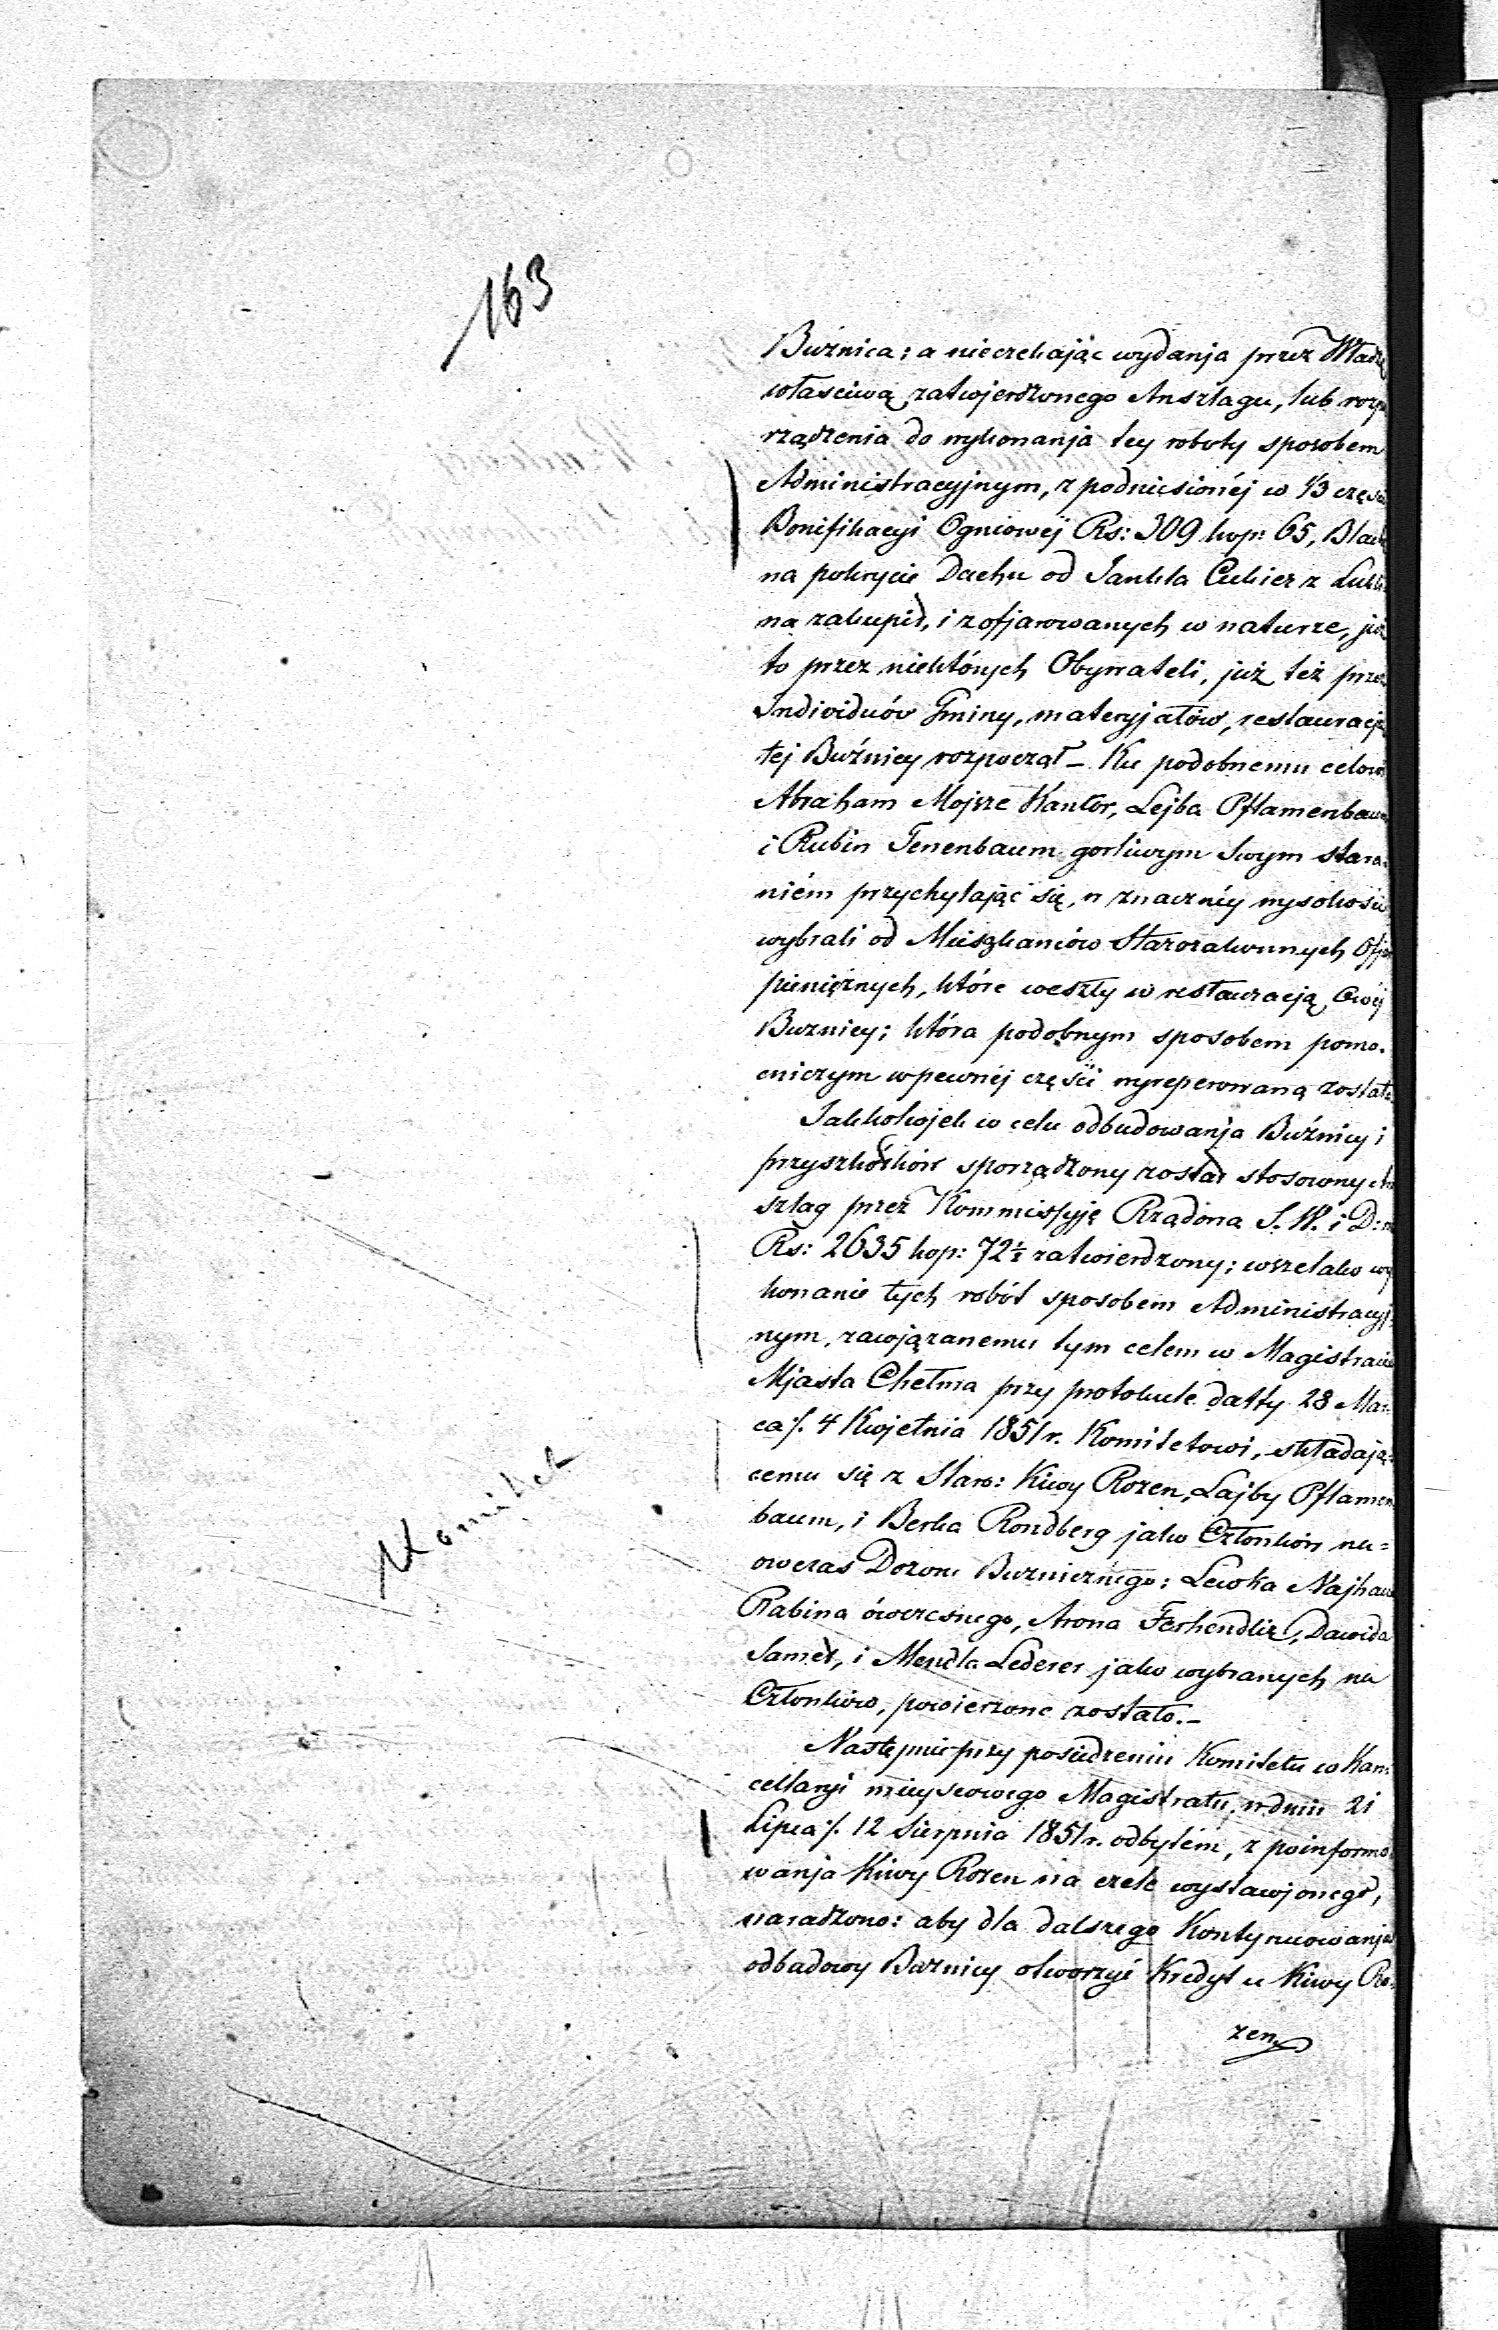 163
Buźnica; a nieczekając wydanja przez Władzę
właściwą zatwjerdzonego Anszlagu, lub rozpo
rządzenia do wykonanja tey roboty sposobem
Administracyjnym, z podniesionéj w 1/3 części
Bonifikacyi Ogniowéj Rs: 309 kop: 65, Blach
na pokrycie Dachu od Jankla Cukier z Lubli
na zakupił, i z ofjarowanych w naturze, już
to przez niektórych Obywateli, już też przez
Individuów Gminy, materyjałów, restauracją
tej Buźnicy rozpoczął – Ku podobnemu celowi
Abraham Mojsze Kantor, Lejba Pflamenbaum
i Rubin Tenenbaum gorliwym Swym stara-
niém przychylając się, w znacznéy wysokości
wybrali od Mieszkanców Starozakonnych Ofjar
pieniężnych, które weszły w restauracją Owéj
Buznicy; która podobnym sposobem pomo-
cniczym w pewnéj części wyreperowaną została.
Jakkolwjek w celu odbudowanja Buźnicy i
przyszkółków sporządzony został stosowny An
szlag przez Kommissyję Rządową S. W. i D: na
Rs: 2635 kop: 72½ zatwierdzony; wszelako wy
konanie tych robót sposobem Administracyj-
nym, zawjązanemu tym celem w Magistracie
Mjasta Chełma przy protokule datty 28 Mar-
ca /. 4 Kwjetnia 1851 r. Komitetowi, składają-
cemu się z Staro: Kiwy Rozen, Lajby Pflamen
baum, i Berka Rondberg jako Członków na=
owczas Dozoru Buzniczнego: Lewka Najhaus
Rabina ówczesnego, Arona Ferhendler, Dawida
Samet, i Mendla Lederer jako wybranych na
Członków, powierzone zostało. –
Komitet
Następnie przy posiedzeniu Komitetu w Kan=
cellaryi mieyscowego Magistratu, w dniu 21
Lipca /. 12 Sierpnia 1851 r. odbytém, z poinformo
wanja Kiwy Rozen na czele wystawjonego,
naradzono: aby dla dalszego Kontynuowanja
odbudowy Buznicy otworzyć Kredyt u Kiwy Ro-
zen